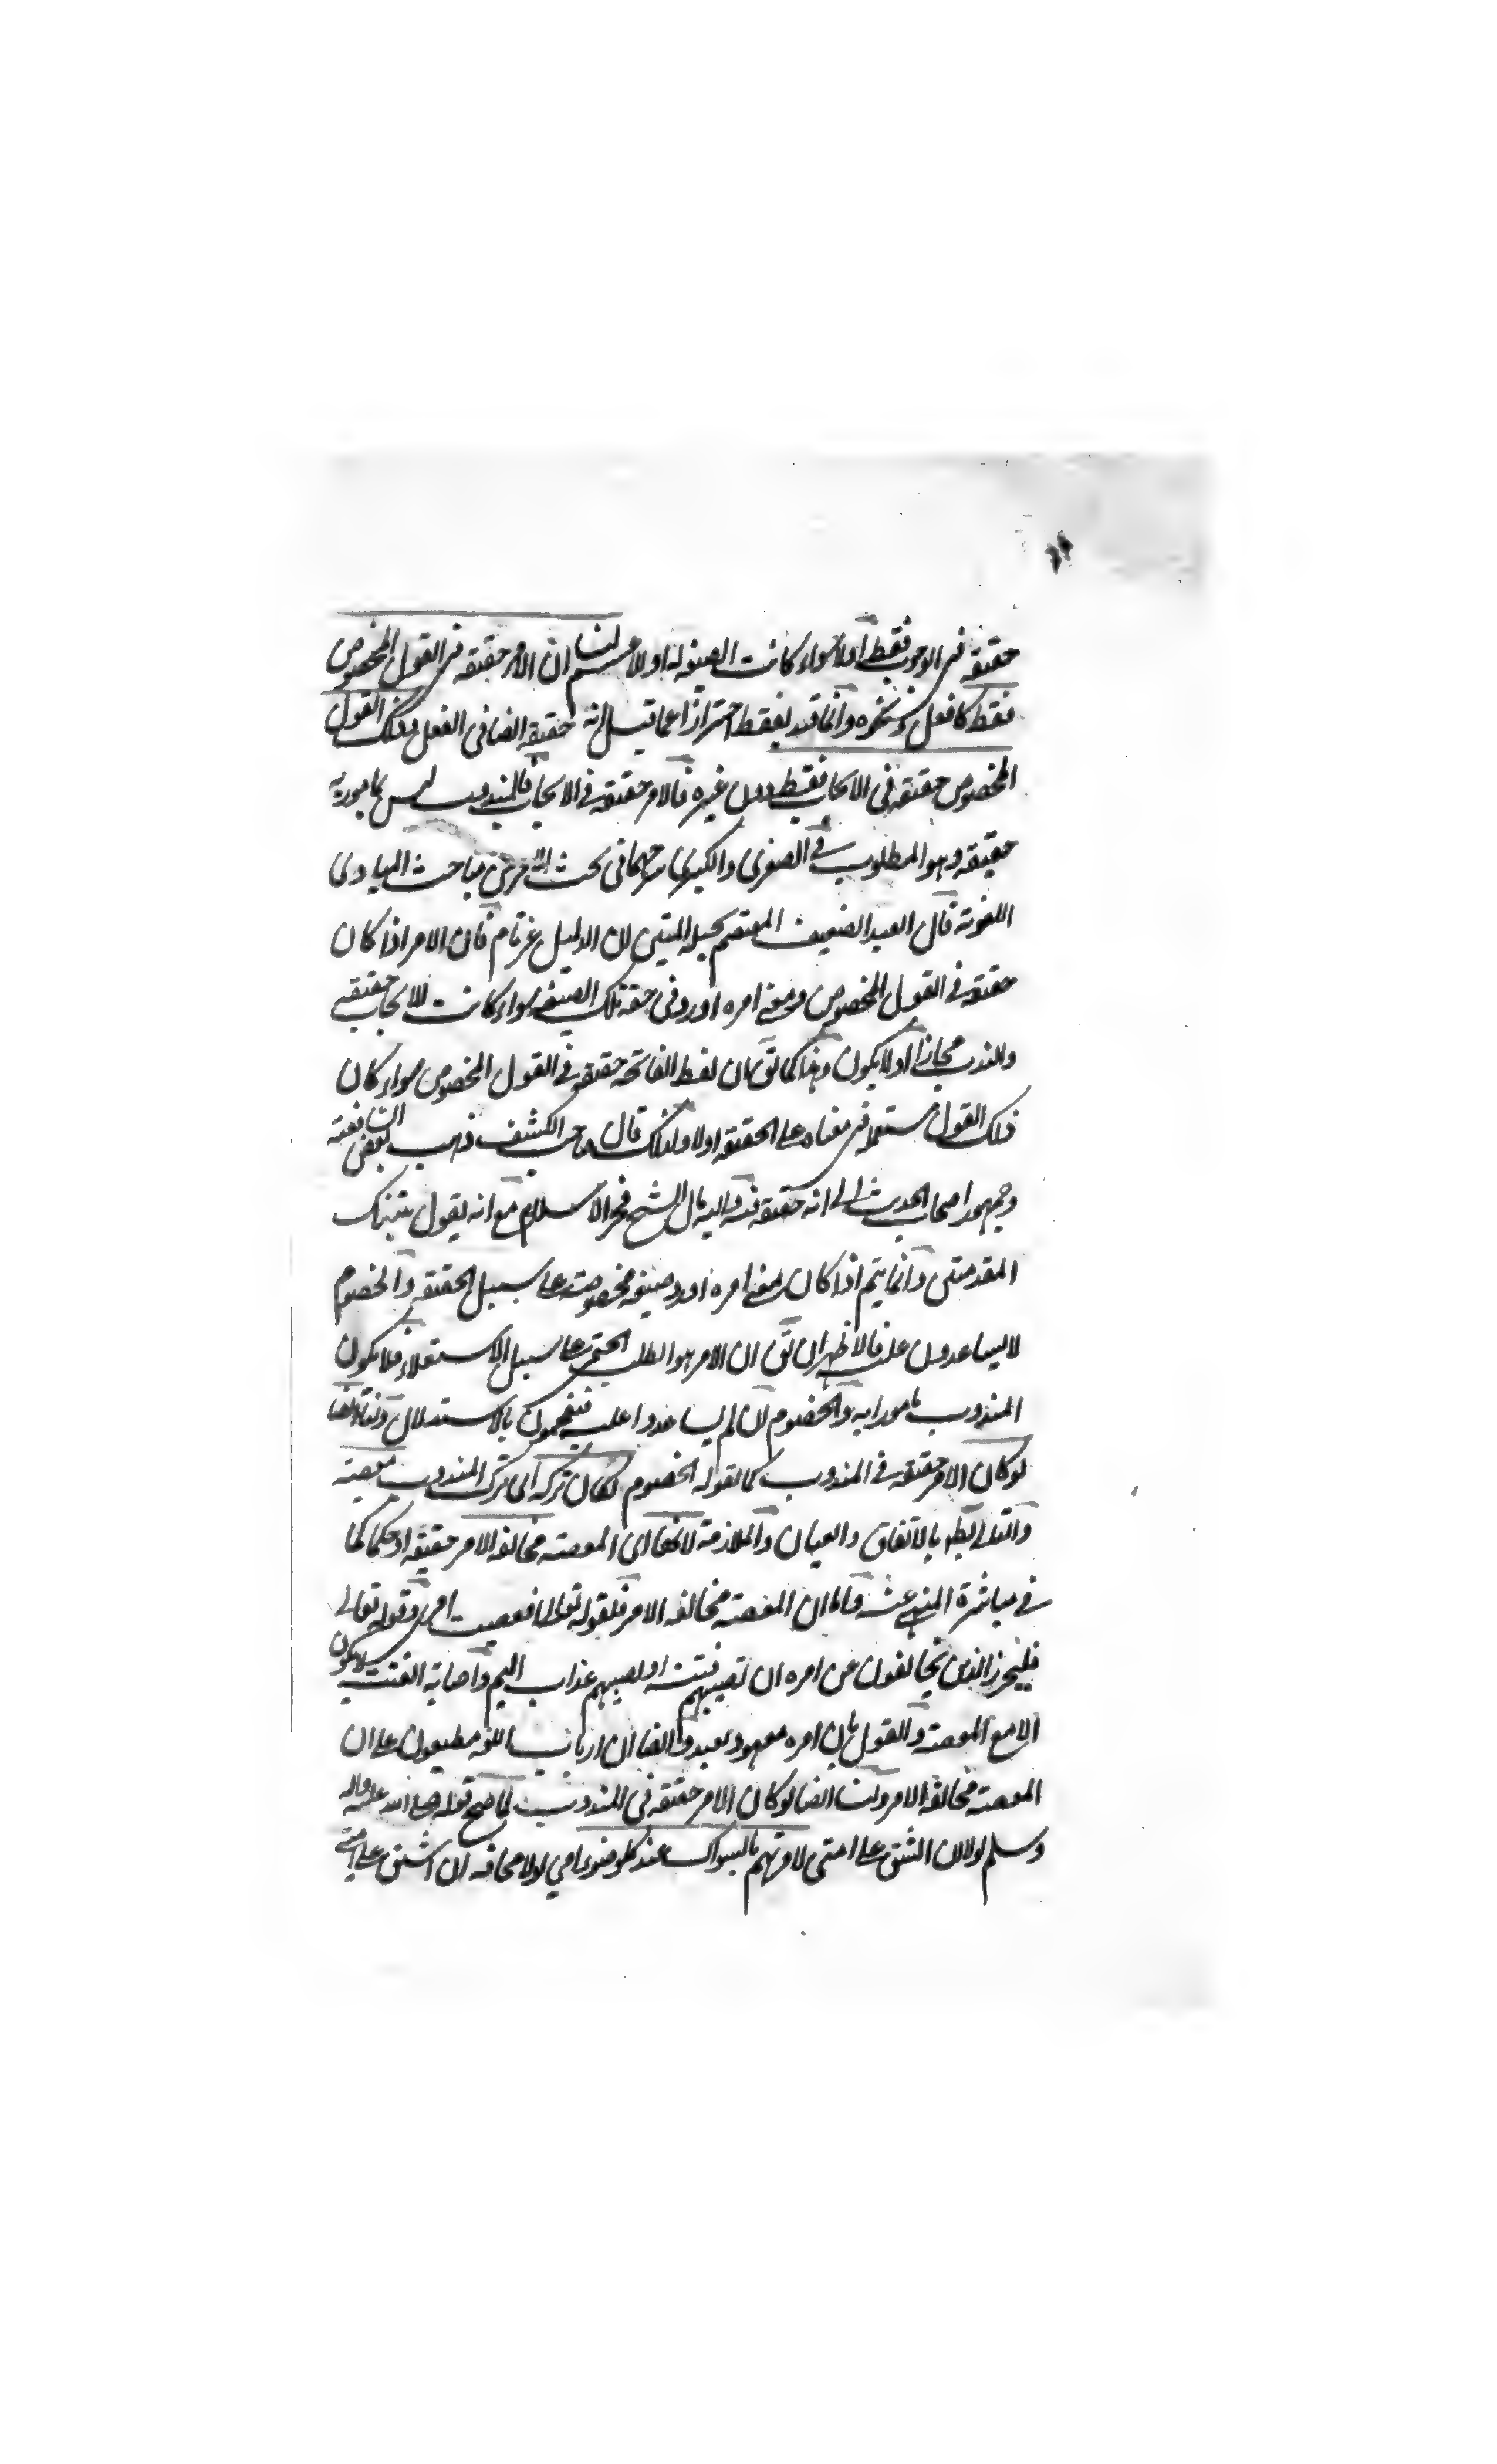 حقيقة في الوجوب فقط اولا سواء كانت الصيغة له اولا لنا ان الامر حقيقة في القول المخصوص
فقط كافعل ونحوه وانما قيد بفقط احترازا عما قيل انه حقيقة ايضا في الفعل وذلك القول
المخصوص حقيقة في الايجاب فقط دون غيره فالامر حقيقة في الايجاب فالمندوب ليس بمامور به
حقيقة وهو المطلوب في الصغرى والكبرى في بحث الامر من مباحث المبادى
اللغوية قال العبد الضعيف المعتصم بحبله المتين ان الدليل غير تام فان الامر اذا كان
حقيقة في القول المخصوص فمعنى امره اورد في حقه تلك الصيغة سواء كانت للايجاب حقيقة
وللندب مجازا او لا يكون وهذا كما يق ان لفظ الفاتحة حقيقة في القول المخصوص سواء كان
ذلك القول مستعملة في معناه على الحقيقة اولا ولذلك قال صاحب الكشف ذهب بعض الشافعية
وجمهور اصحاب الحديث الى انه حقيقة فيه واليه مال الشيخ فخر الاسلام مع انه يقول بتينك
المقدمتين وانما يتم اذا كان معنى امره اورد صيغة مخصوصة على سبيل الحقيقة والخصوم
لا يساعدون عليه فالاظهر ان يق ان الامر هو الطلب الحتمى على سبيل الاستعلاء فلا يكون
المندوب مامورا به والخصوم ان لم يساعدوا عليه فيفحمون بالاستدلال ولنا ايضا
لو كان الامر حقيقة في المندوب كما يقوله الخصوم لكان تركه اى ترك المندوب معصية
والتالى بط بالاتفاق والعيان والملازمة لانها اى المعصية مخالفة الامر حقيقة او حكما كما
في مباشرة المنهى عنه واما ان المعصية مخالفة الامر فلقوله تعالى افعصيت امرى وقوله تعالى
فليحذر الذين يخالفون عن امره ان تصيبهم فتنة او يصيبهم عذاب اليم واصابة الفتنة لا يكون
الا مع المعصية والقول بان امره معهود بعيد وايضا ان ارباب اللغة مطبقون على ان
المعصية مخالفة الامر ولنا ايضا لو كان الامر حقيقة في المندوب لما صح قوله صلى الله عليه واله
وسلم لولا ان اشق على امتى لامرتهم بالسواك عند كل وضوء اى لولا مخافة ان اشق على امتى